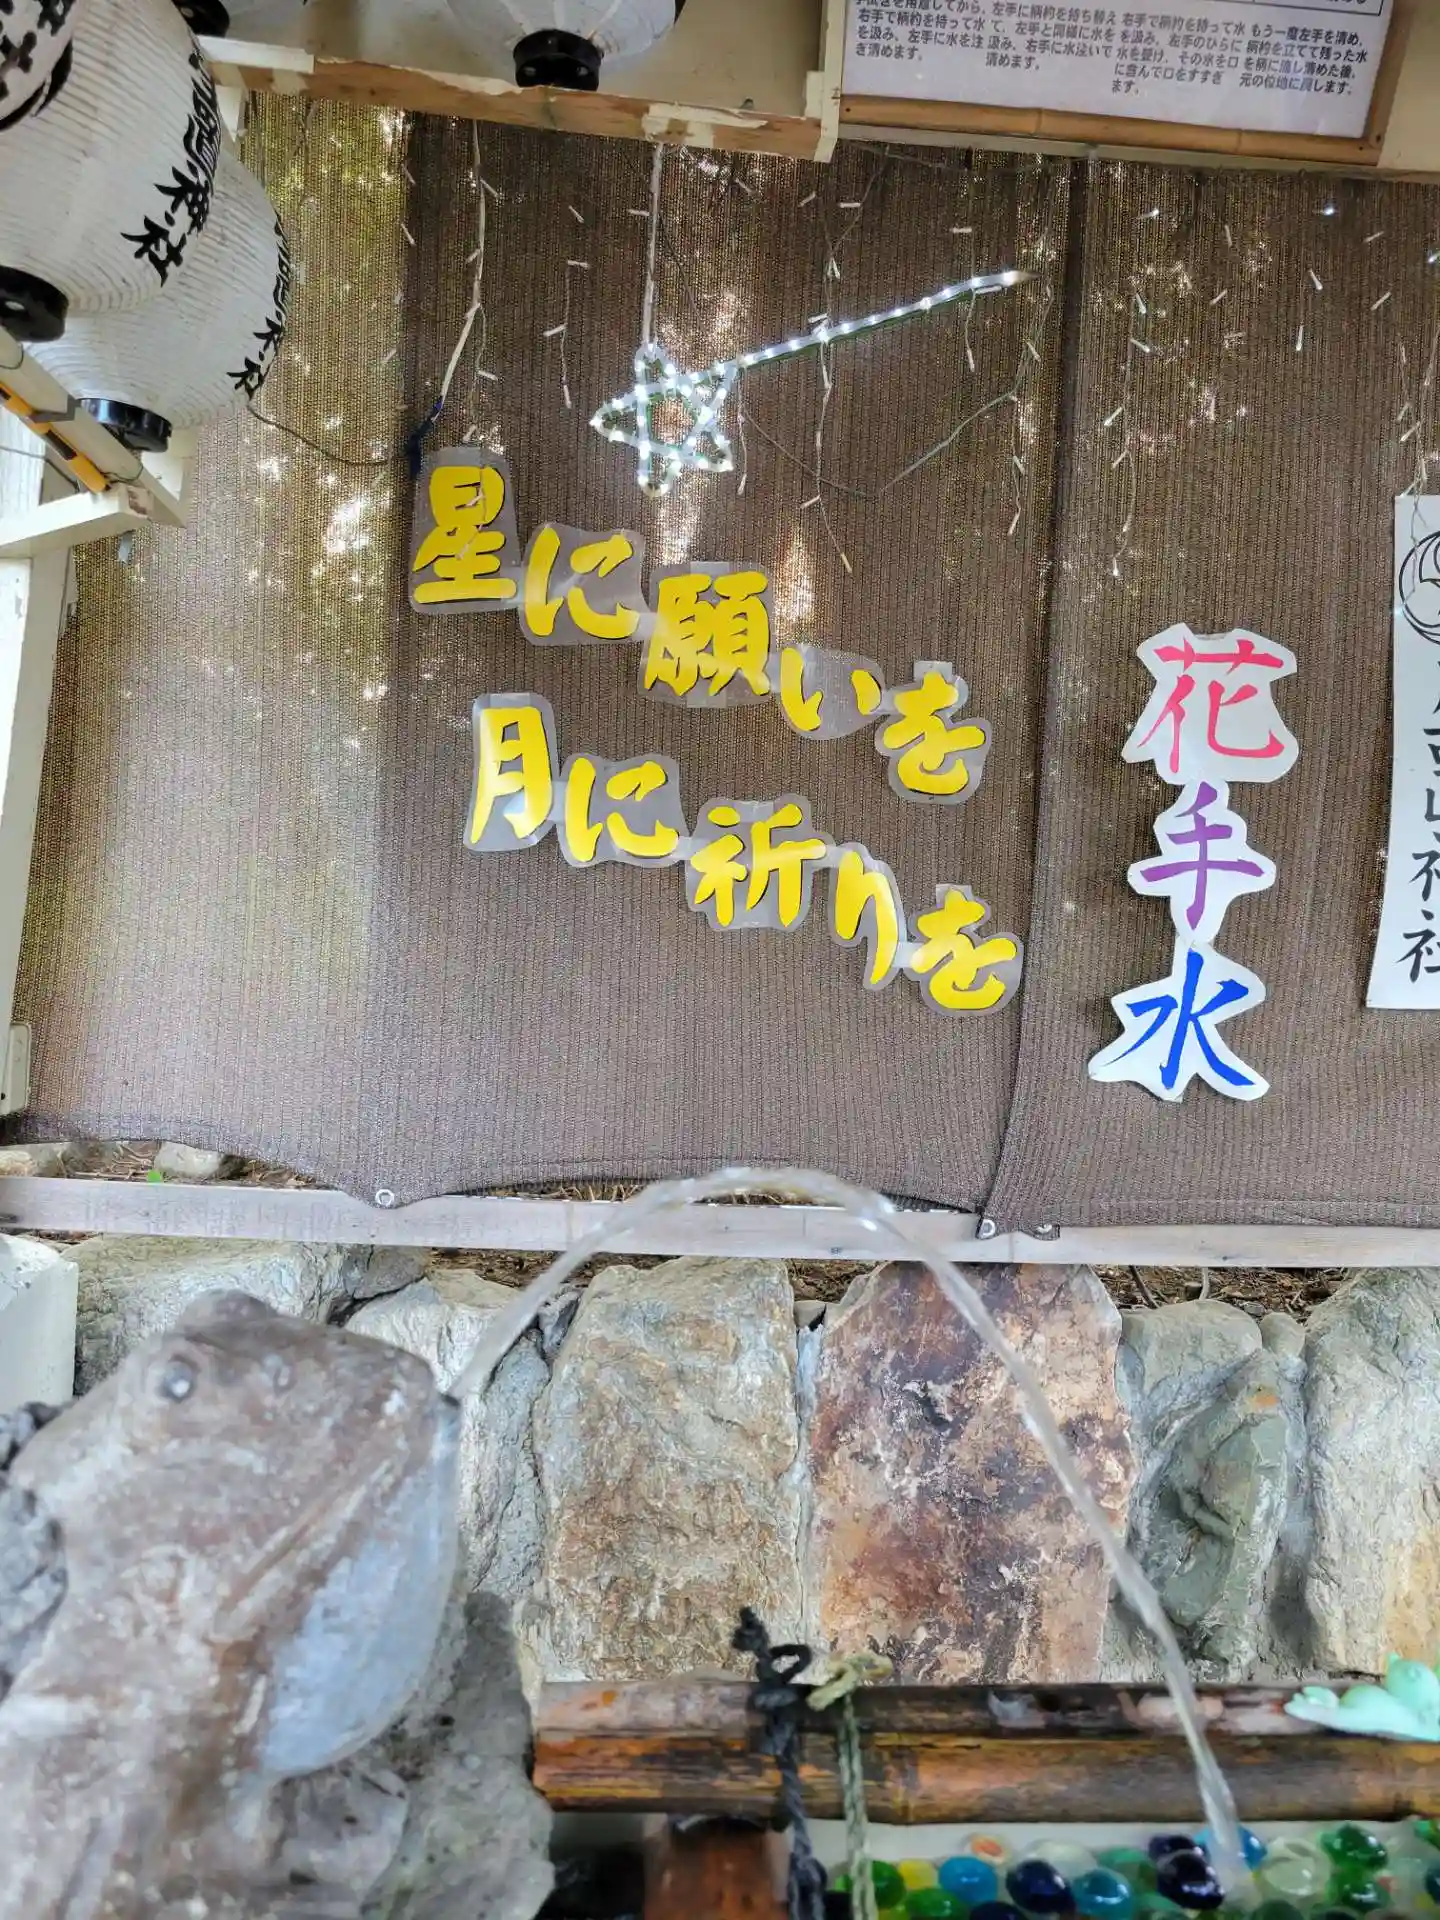 右手で柄杓を持って水を汲み、左手に水を注ぎ清めます。
左手に柄杓を持ち替えて、左手と同様に水を汲み、右手に水注いで清めます。
右手で柄杓を持って水を汲み、左手のひらに水を受け、その水を口に含んで口をすすぎます。
もう一度左手を清め、柄杓を立てて残った水を柄に流し清めた後、元の位置に戻します。
神社
神社
星に願いを
月に祈りを
花手水
神社